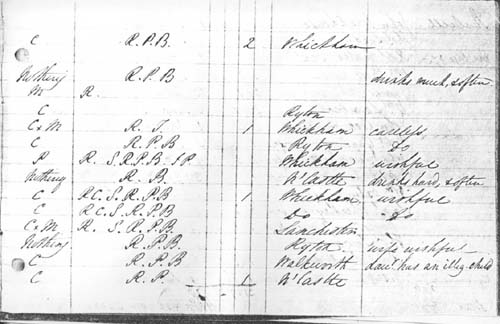 C R.P.B. 2 Whickham
Nothing R.P.B drinks much, & often
M R.
C Ryton
C & M R. T. 1 Whickham careless
C R.P.B Ryton Do
P R. S. R.P.B. I P Whickham wishful
Nothing R. B. N'Castle drinks hard, & often
C R C. S. R. P B 1 Whickham wishful
C R C. S. R. P. B Do Do
C & M R. S. R. P. B. Lanchester
Nothing R. P. B. Ryton wife wishful
C R. P. B Walkworth daur. has an illeg. child
C R. P. 1 N'Castle